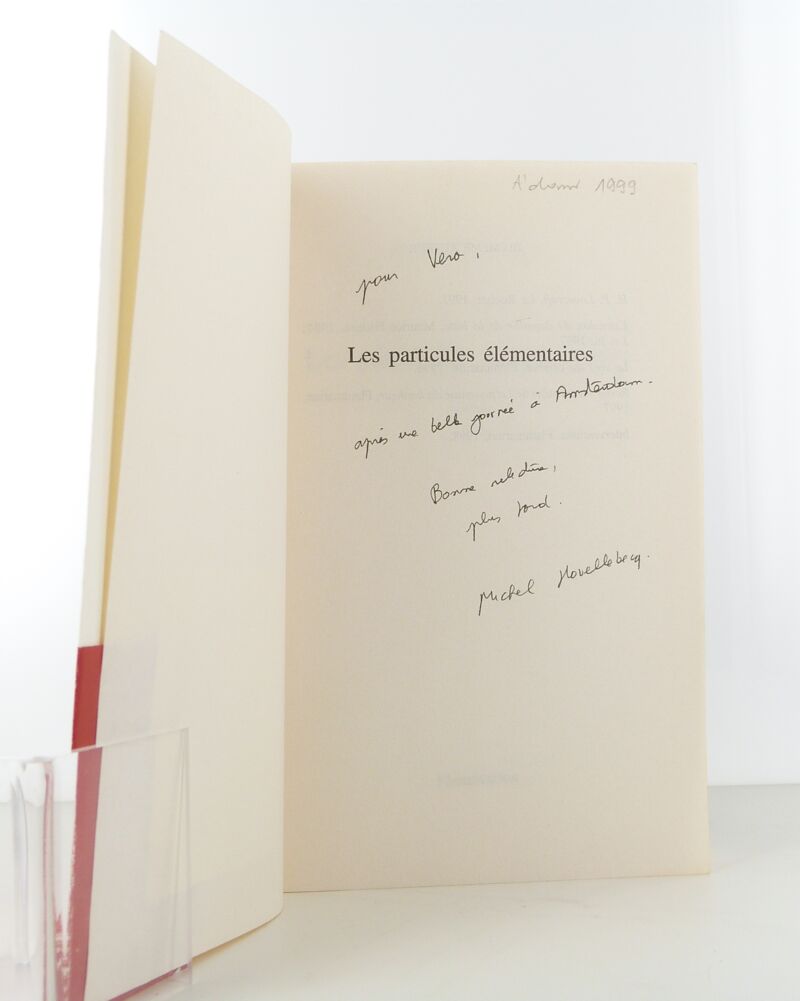 A'dam 1999
pour Vera,
Les particules élémentaires
après une belle journée à Amsterdam.
Bonne relecture,
plus tard.
Michel Houellebecq.